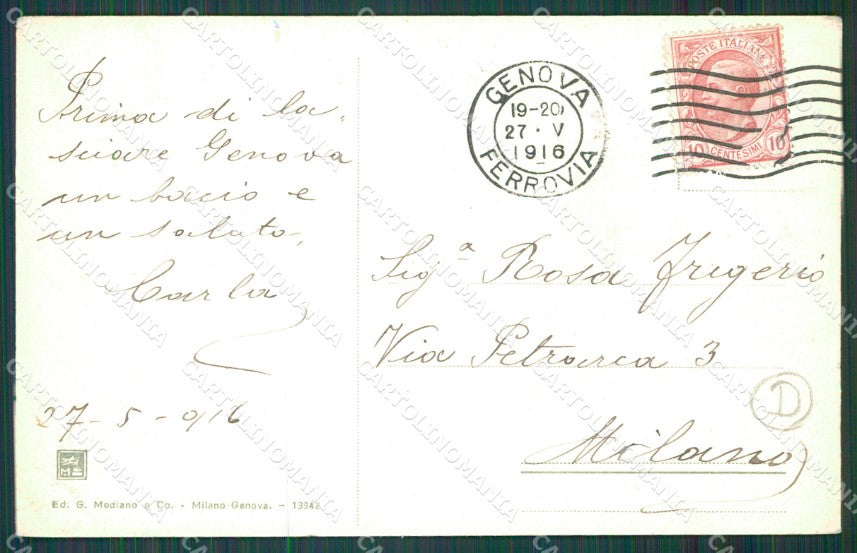 Prima di la-
sciare Genova
un bacio e
un saluto,
Carla
27-5-916
Ed. G. Modiano e Co. - Milano-Genova. - 13942
GENOVA
19-20
27 · V
1916
FERROVIA
POSTE ITALIANE
10 CENTESIMI 10
Sigª Rosa Frigerio
Via Petrarca 3
Milano
D
CARTOLINOMANIA